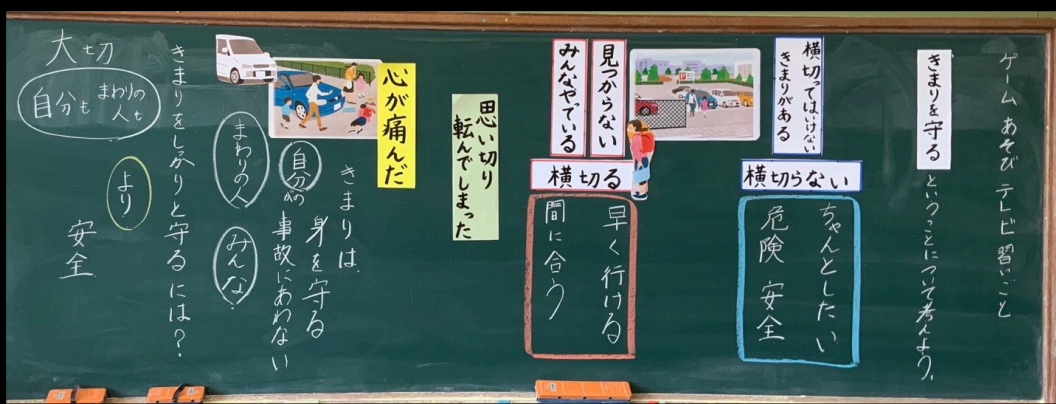 ゲームあそび テレビ 習いごと
きまりを守る
ということについて考えよう。
横切ってはいけない
きまりがある
横切らない
ちゃんとしたい
危険 安全
見つからない
みんなやっている
横切る
早く行ける
間に合う
思い切り
転んでしまった
心が痛んだ
きまりは、
身を守る
自分の
事故にあわない
まわりの人
みんな
きまりをしっかりと守るには?
大切
自分も まわりの
人も
より
安全